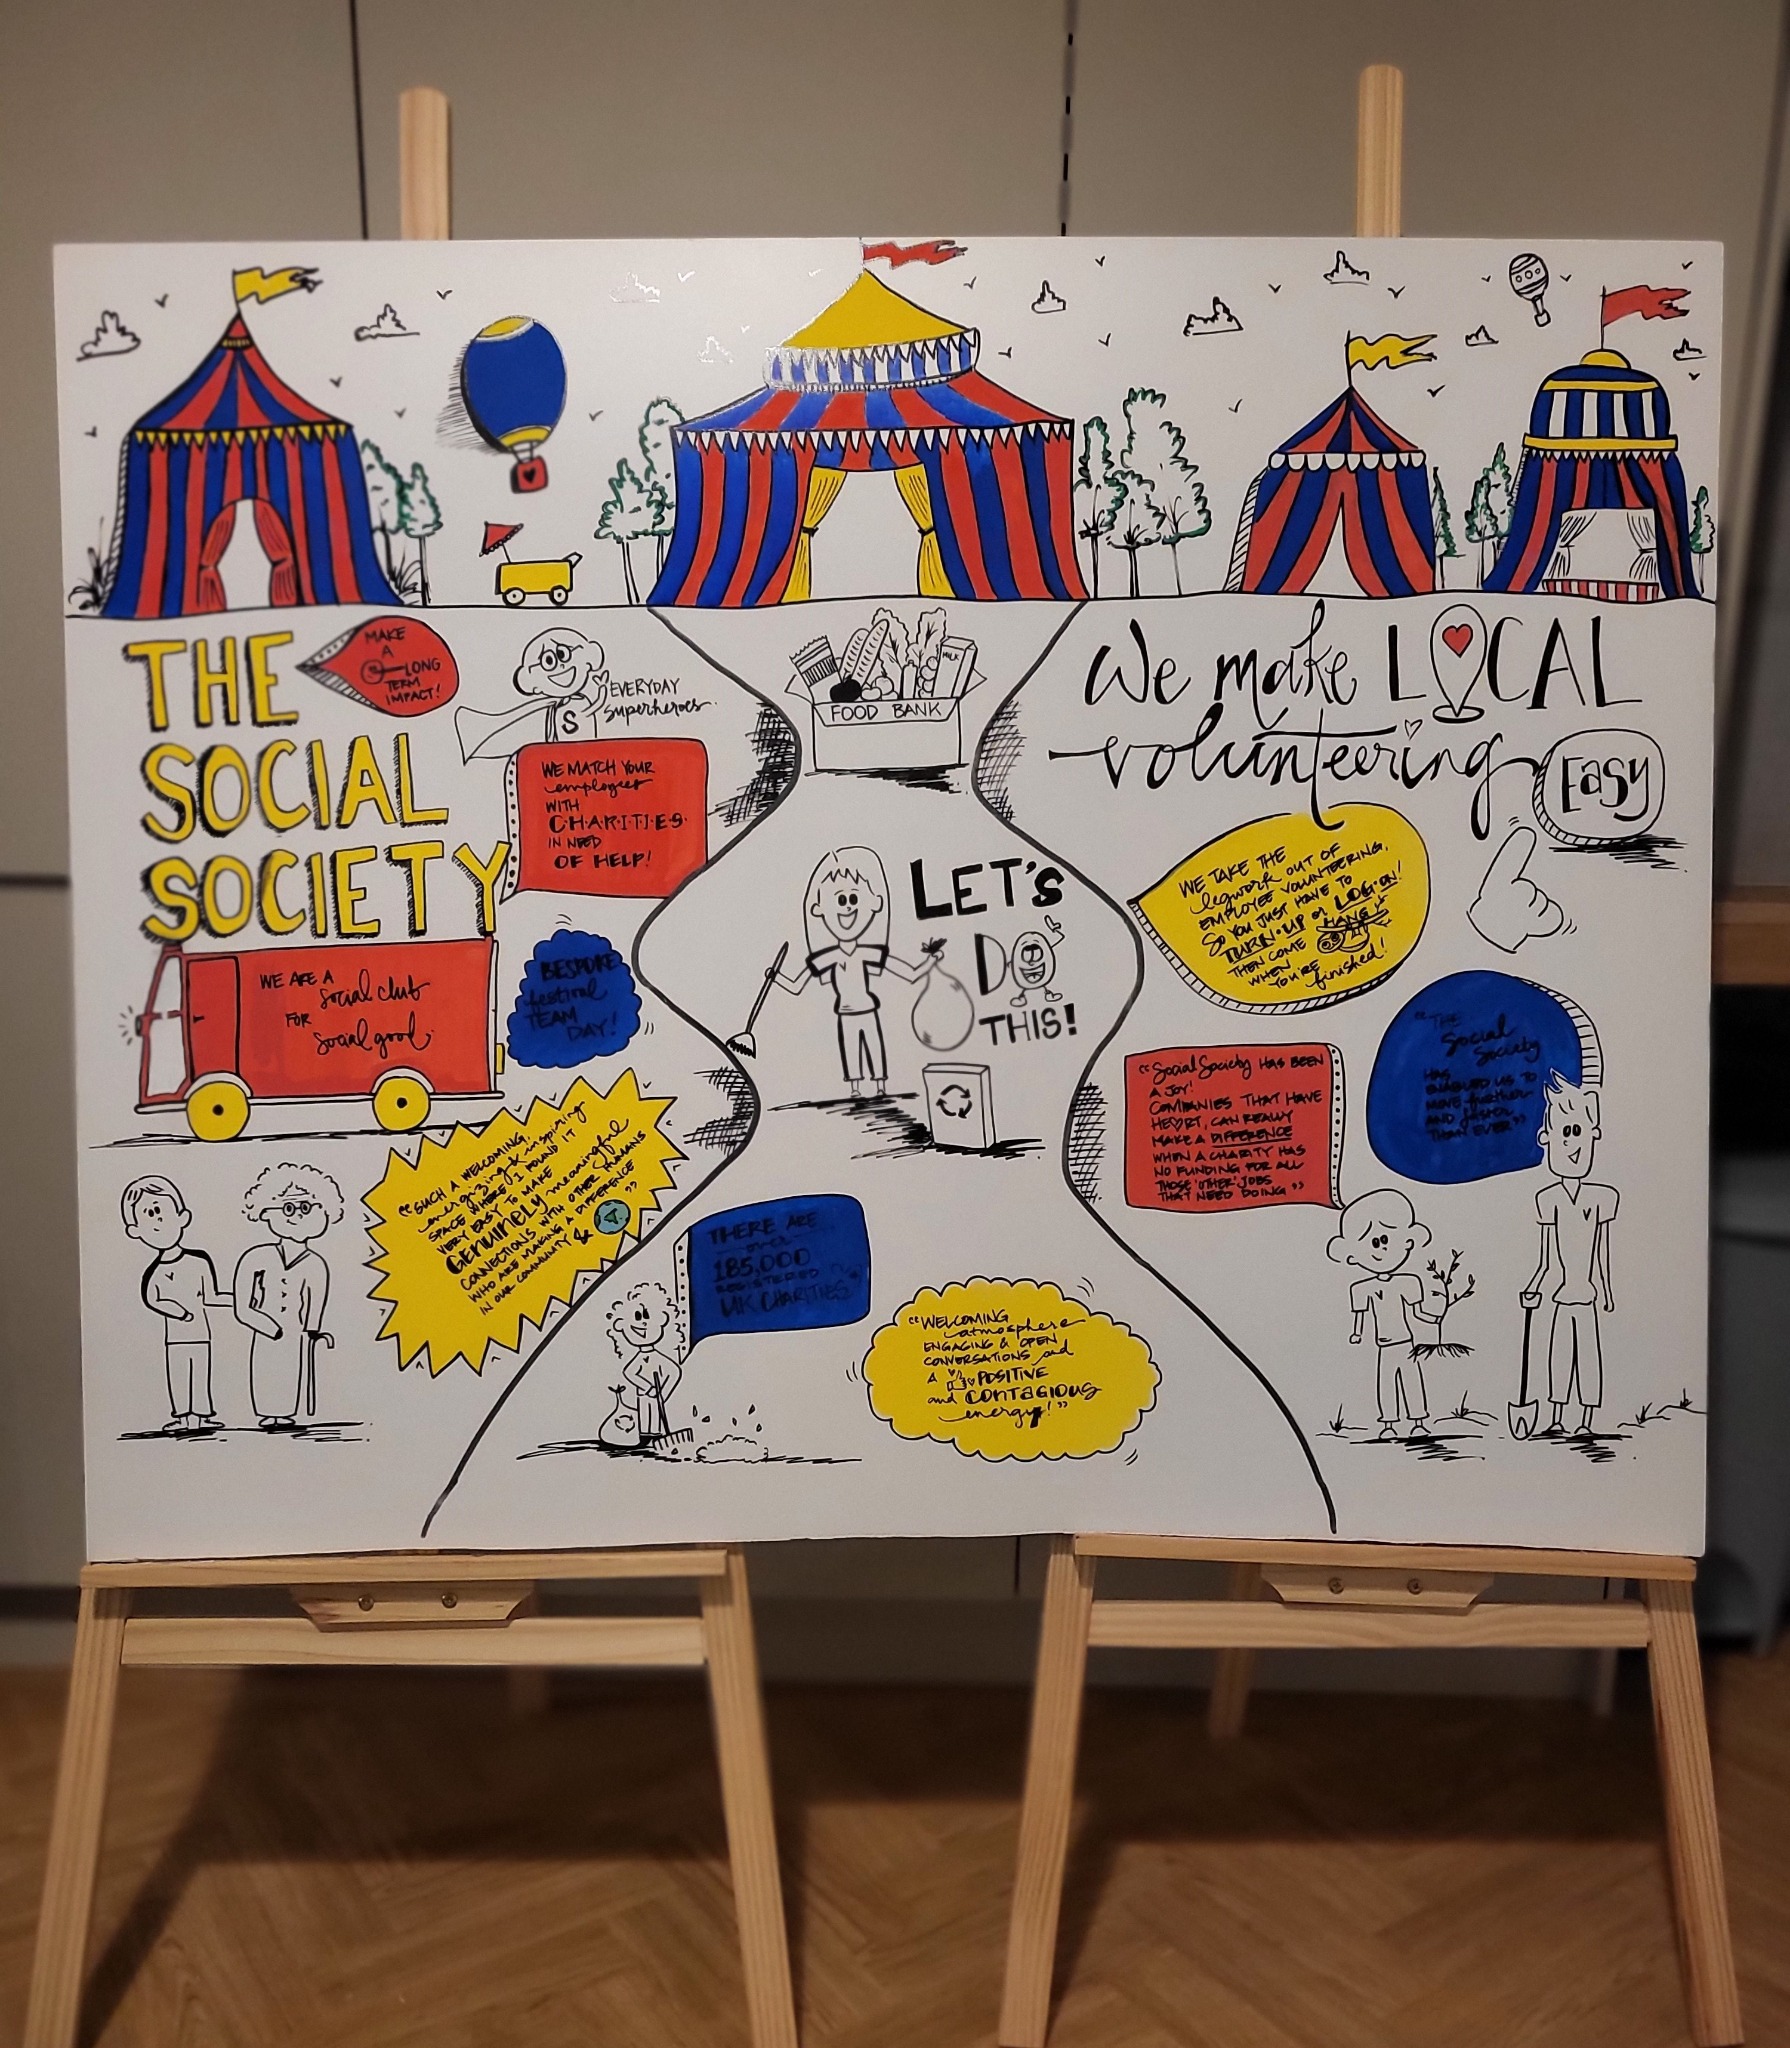 THE
SOCIAL
SOCIETY
MAKE
A
LONG
TERM
IMPACT!
EVERYDAY
superheroes.
S
WE MATCH YOUR
employees
WITH
C·H·A·R·I·T·I·E·S·
IN NEED
OF HELP!
WE ARE A
social club
FOR
social good
BESPOKE
festival
TEAM
DAY!
"SUCH A WELCOMING,
energizing & inspiring
SPACE WHERE I FOUND IT
VERY EASY TO MAKE
GENUINELY meaningful
CONNECTIONS WITH OTHER HUMANS
WHO ARE MAKING A DIFFERENCE
IN OUR COMMUNITY & "
MILK
FOOD BANK
LET'S
DO
THIS!
THERE ARE
over
185,000
REGISTERED
UK CHARITIES
"WELCOMING
atmosphere
ENGAGING & OPEN
CONVERSATIONS and
A POSITIVE
and CONTAGIOUS
energy!"
We make LOCAL
volunteering
EASY
WE TAKE THE
legwork OUT OF
EMPLOYEE VOLUNTEERING,
SO YOU JUST HAVE TO
TURN·UP or LOG·ON!
THEN COME HANG
WHEN
YOU'RE
finished!
"Social Society HAS BEEN
A JOY!
COMPANIES THAT HAVE
HEART, CAN REALLY
MAKE A DIFFERENCE
WHEN A CHARITY HAS
NO FUNDING FOR ALL
THOSE 'OTHER' JOBS
THAT NEED DOING"
"THE
Social
Society
HAS
ENABLED US TO
MOVE further
AND faster
THAN EVER"